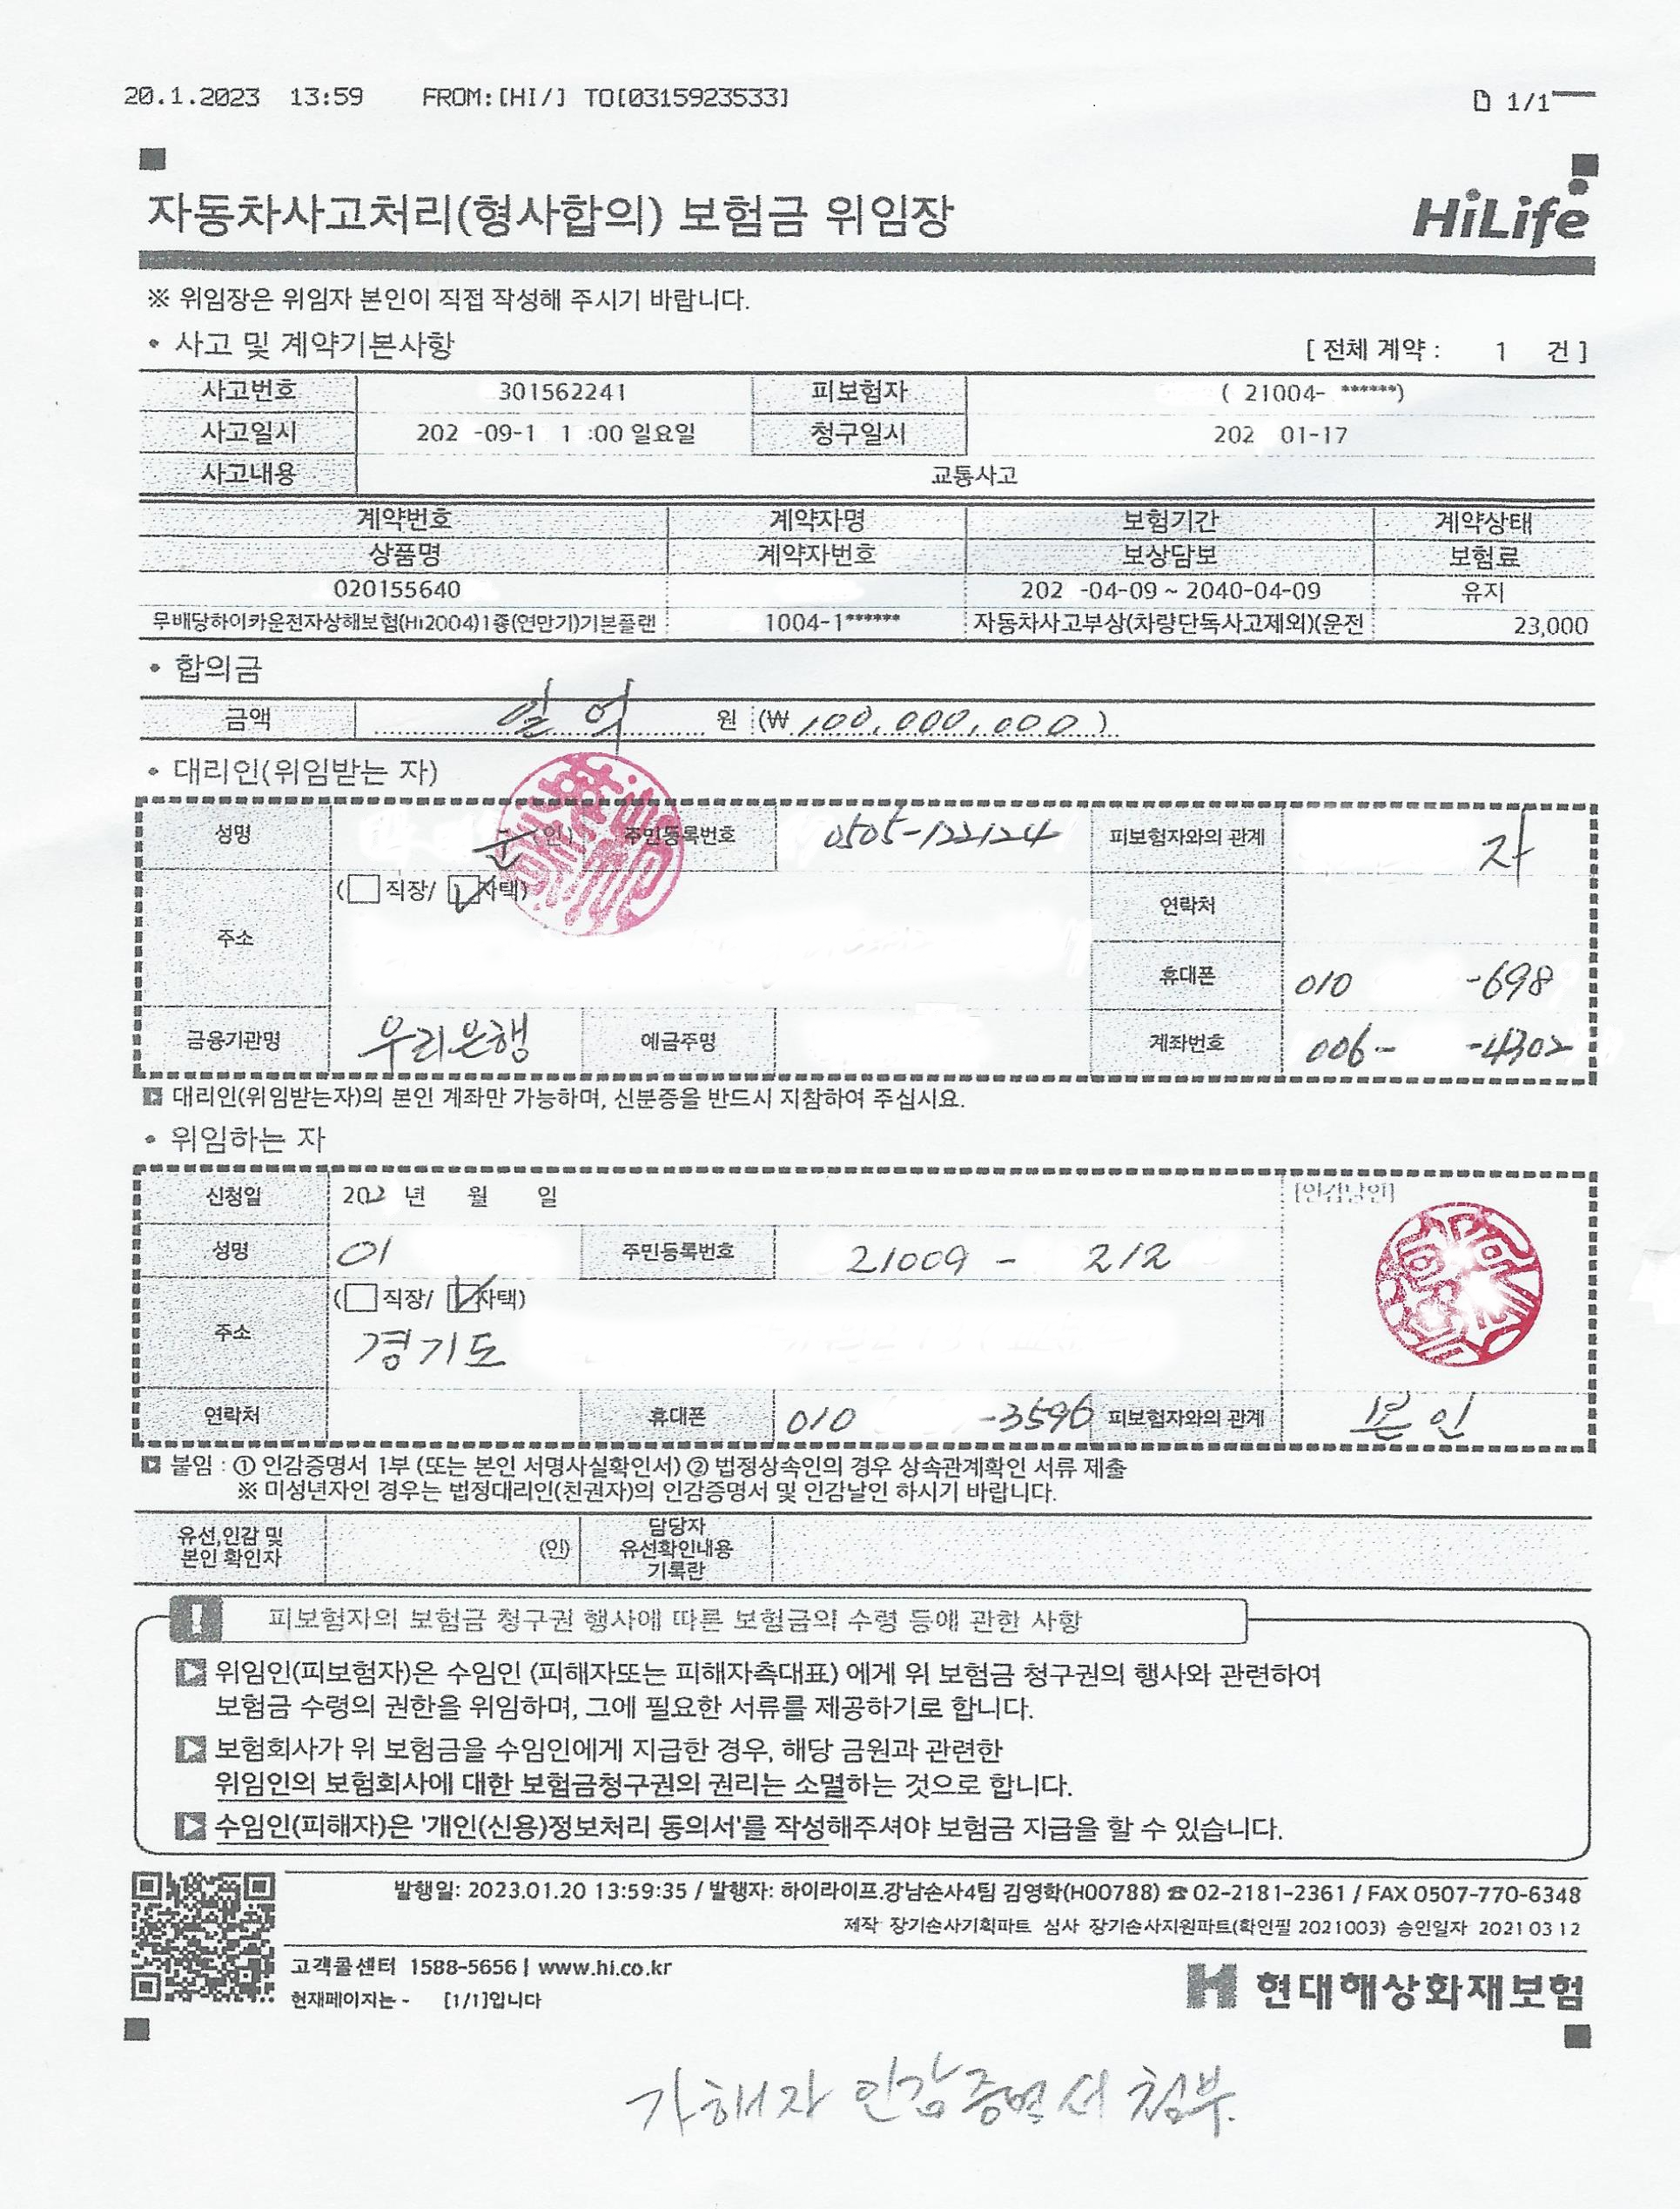 20.1.2023 13:59 FROM:[HI/] TO[0315923533] 1/1
자동차사고처리(형사합의) 보험금 위임장 HiLife
※ 위임장은 위임자 본인이 직접 작성해 주시기 바랍니다.
• 사고 및 계약기본사항 [ 전체 계약 : 1 건 ]
사고번호 301562241 피보험자 ( 21004- ******)
사고일시 202 -09-1 1 :00 일요일 청구일시 202 01-17
사고내용 교통사고
계약번호 계약자명 보험기간 계약상태
상품명 계약자번호 보상담보 보험료
020155640 202 -04-09 ~ 2040-04-09 유지
무배당하이카운전자상해보험(Hi2004)1종(연만기)기본플랜 1004-1****** 자동차사고부상(차량단독사고제외)(운전 23,000
• 합의금
금액 일억 원 (₩ 100,000,000 )
• 대리인(위임받는 자)
성명 (인) 주민등록번호 0505-122124 피보험자와의 관계 자
(□ 직장/ ☑ 자택)
주소 연락처
휴대폰 010 -698
금융기관명 우리은행 예금주명 계좌번호 006- -4302
대리인(위임받는자)의 본인 계좌만 가능하며, 신분증을 반드시 지참하여 주십시요.
• 위임하는 자
신청일 202 년 월 일 [인감날인]
성명 이 주민등록번호 21009 - 212
(□ 직장/ ☑ 자택)
주소 경기도
연락처 휴대폰 010 -3596 피보험자와의 관계 본인
붙임 : ① 인감증명서 1부 (또는 본인 서명사실확인서) ② 법정상속인의 경우 상속관계확인 서류 제출
※ 미성년자인 경우는 법정대리인(친권자)의 인감증명서 및 인감날인 하시기 바랍니다.
유선,인감 및 본인 확인자 (인) 담당자 유선확인내용 기록란
! 피보험자의 보험금 청구권 행사에 따른 보험금의 수령 등에 관한 사항
위임인(피보험자)은 수임인 (피해자또는 피해자측대표) 에게 위 보험금 청구권의 행사와 관련하여
보험금 수령의 권한을 위임하며, 그에 필요한 서류를 제공하기로 합니다.
보험회사가 위 보험금을 수임인에게 지급한 경우, 해당 금원과 관련한
위임인의 보험회사에 대한 보험금청구권의 권리는 소멸하는 것으로 합니다.
수임인(피해자)은 '개인(신용)정보처리 동의서'를 작성해주셔야 보험금 지급을 할 수 있습니다.
발행일: 2023.01.20 13:59:35 / 발행자: 하이라이프.강남손사4팀 김영학(H00788) ☎ 02-2181-2361 / FAX 0507-770-6348
제작 장기손사기획파트 심사 장기손사지원파트(확인필 2021003) 승인일자 20210312
고객콜센터 1588-5656 | www.hi.co.kr
현재페이지는 - [1/1]입니다
현대해상화재보험
가해자 인감증명서 첨부.